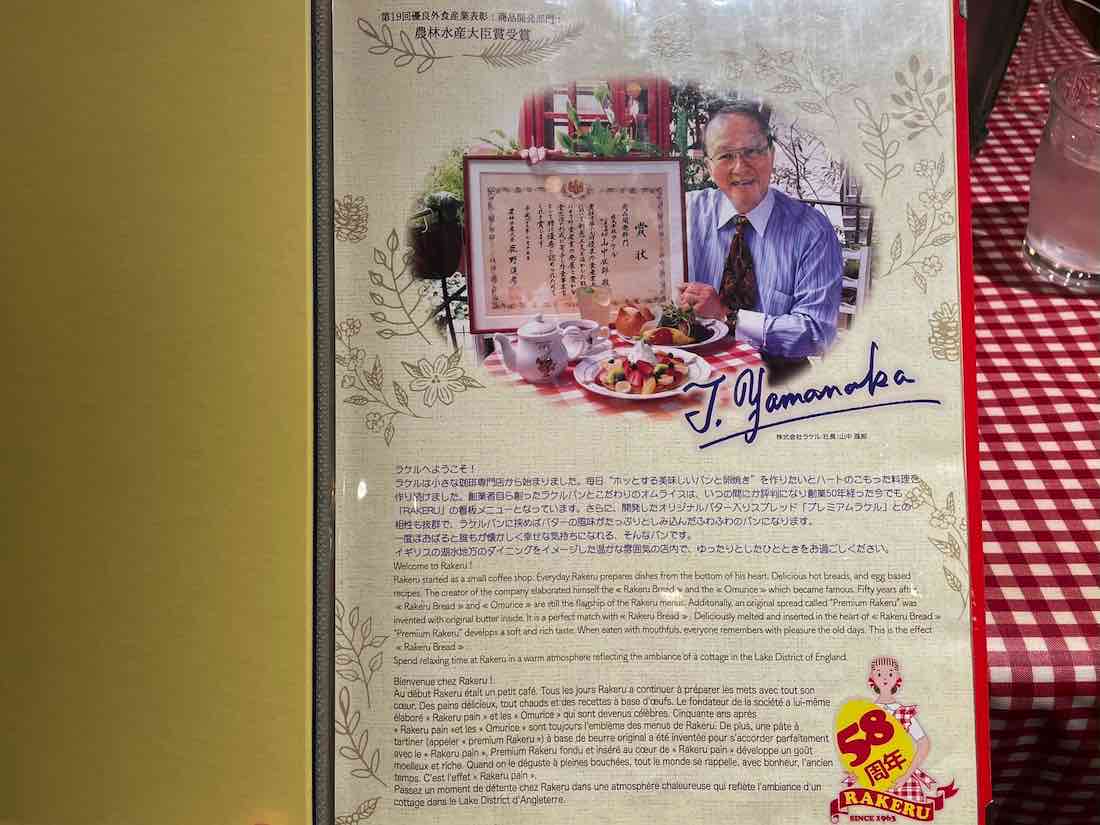 第19回優良外食産業表彰:商品開発部門:
農林水産大臣賞受賞
賞状
T. Yamanaka
株式会社ラケル 社長:山中
ラケルへようこそ!
ラケルは小さな珈琲専門店から始まりました。毎日 “ホッとする美味しいパンと卵焼き” を作りたいとハートのこもった料理を
作り続けました。創業者自ら創ったラケルパンとこだわりのオムライスは、いつの間にか評判になり創業50年経った今でも
「RAKERU」の看板メニューとなっています。さらに、開発したオリジナルバター入りスプレッド「プレミアムラケル」との
相性も抜群で、ラケルパンに挟めばバターの風味がたっぷりとしみ込んだふわふわのパンになります。
一度ほおばると誰もが懐かしく幸せな気持ちになれる、そんなパンです。
イギリスの湖水地方のダイニングをイメージした温かな雰囲気の店内で、ゆったりとしたひとときをお過ごしください。
Welcome to Rakeru !
Rakeru started as a small coffee shop. Everyday Rakeru prepares dishes from the bottom of his heart. Delicious hot breads, and egg based
recipes. The creator of the company elaborated himself the « Rakeru Bread » and the « Omurice » which became famous. Fifty years after,
« Rakeru Bread » and « Omurice » are still the flagship of the Rakeru menus. Additonally, an original spread called "Premium Rakeru" was
invented with original butter inside. It is a perfect match with « Rakeru Bread » . Deliciously melted and inserted in the heart of « Rakeru Bread »
"Premium Rakeru" develops a soft and rich taste. When eaten with mouthfuls, everyone remembers with pleasure the old days. This is the effect
« Rakeru Bread » .
Spend relaxing time at Rakeru in a warm atmosphere reflecting the ambiance of a cottage in the Lake District of England.
Bienvenue chez Rakeru !
Au début Rakeru était un petit café. Tous les jours Rakeru a continuer à préparer les mets avec tout son
cœur. Des pains délicieux, tout chauds et des recettes a base d'œufs. Le fondateur de la société a lui-même
élaboré « Rakeru pain » et les « Omurice » qui sont devenus célèbres. Cinquante ans après
« Rakeru pain »et les « Omurice » sont toujours l'emblème des menus de Rakeru. De plus, une pâte à
tartiner (appeler « premium Rakeru ») à base de beurre original a été inventée pour s'accorder parfaitement
avec le « Rakeru pain ». Premium Rakeru fondu et inséré au cœur de « Rakeru pain » développe un goût
moelleux et riche. Quand on le déguste à pleines bouchées, tout le monde se rappelle, avec bonheur, l'ancien
temps. C'est l'effet « Rakeru pain ».
Passez un moment de détente chez Rakeru dans une atmosphère chaleureuse qui reflète l'ambiance d'un
cottage dans le Lake District d'Angleterre.
58
周年
RAKERU
SINCE 1963